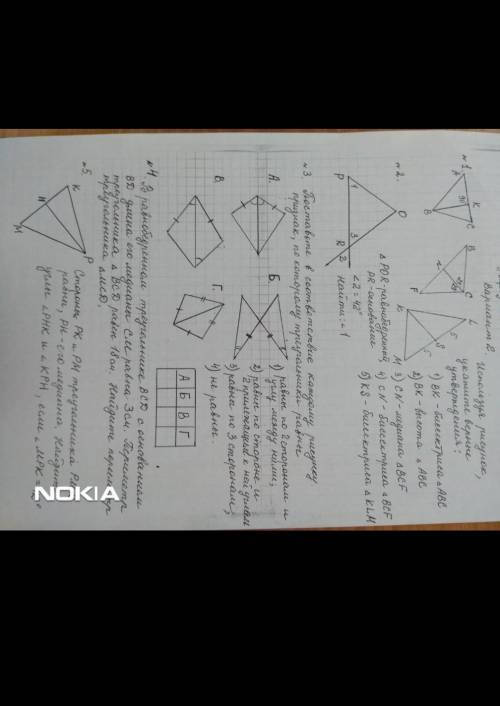 Вариант В
№1. Используя рисунок,
укажите верные
утверждения:
1) BK - биссектриса △ABC
2) BK - высота △ABC
3) CN - медиана △BCF
4) CN - биссектриса △BCF
5) KS - биссектриса △KLM
A
K
C
B
B
C
F
K
L
S
M
№2.
O
P
1
3
R
2
△POR - равнобедренный
PR - основание
∠2 = 42°
Найти: ∠1
№3 Поставьте в соответствие каждому рисунку
признак, по которому треугольники равны
А.
Б.
В.
Г.
1) равны по 2 сторонам и
углу между ними;
2) равны по стороне и
2 прилежащим к ней углам
3) равны по 3 сторонам;
4) не равны.
А Б В Г
№4. В равнобедренном треугольнике BCD с основанием
BD длина его медианы CM равна 3см. Периметр
треугольника △BCD равен 18см. Найдите периметр
треугольника △MCD.
№5.
K
H
M
P
Стороны PK и PM треугольника
равны, PH - его медиана. Найдите
углы ∠PHK и ∠KPH, если ∠MPK =
NOKIA